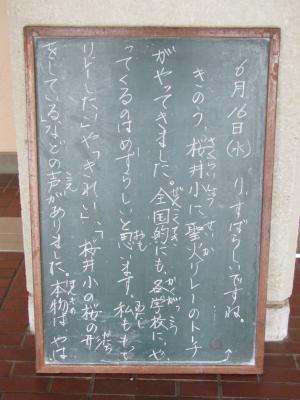 6月16日(水) り、すばらしいですね。
きのう、桜井小に、聖火リレーのトーチ
がやってきました。全国的にも、各学校に、や
ってくるのはめずらしいと思います。私もも
リレーしたい」や「きれい」、「桜井小の桜の形
をしている」などの声がありました。本物は やは